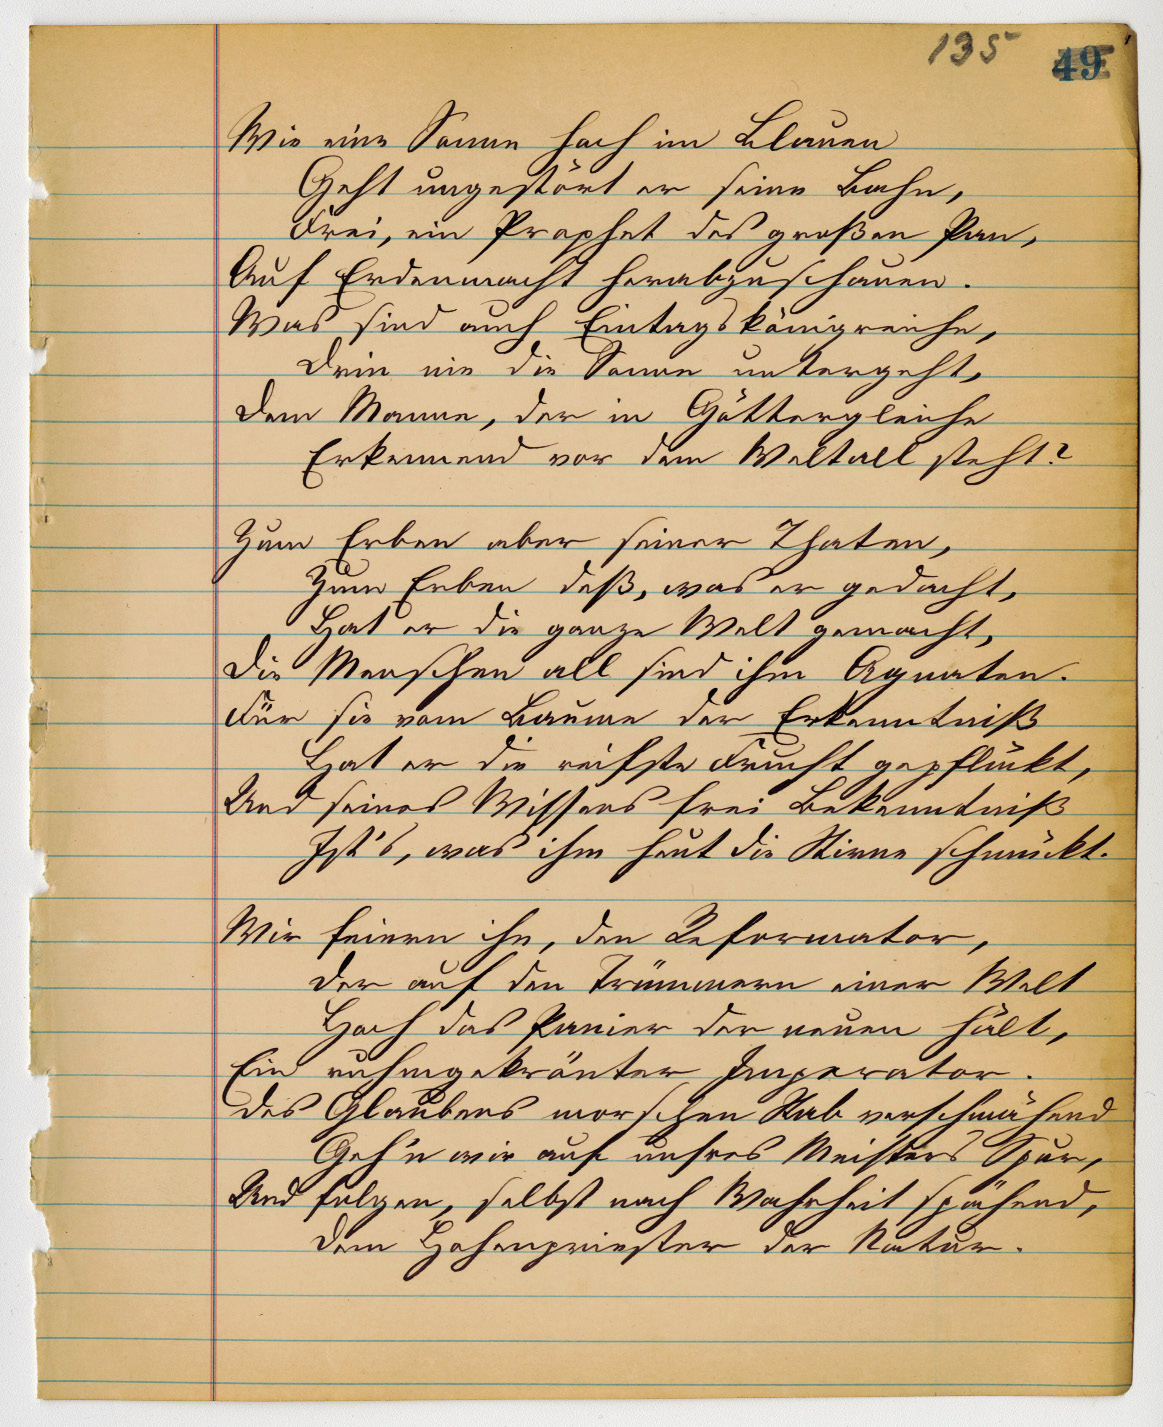 135 49
Wie eine Sonne hoch im Blauen
Geht ungestört er seine Bahn,
Frei, ein Prophet des großen Pan,
Auf Erdenmacht herabzuschauen.
Was sind auch Eintagskönigreiche,
Drin nie die Sonne untergeht,
Dem Manne, der in Göttergleiche
Erkennend vor dem Weltall steht?
Zum Erben aber seiner Thaten,
Zum Erben deß, was er gedacht,
Hat er die ganze Welt gemacht,
Die Menschen all sind ihm Agnaten.
Für sie vom Baume der Erkenntniß
Hat er die reifste Frucht gepflückt,
Und seines Wissens frei Bekenntniß
Ist's, was ihm heut die Stirne schmückt.
Wir feiern ihn, den Reformator,
Der auf den Trümmern einer Welt
Hoch das Panier der neuen hält,
Ein ruhmgekrönter Imperator.
Des Glaubens morschen Stab verschmähend
Geh'n wir auf unsres Meisters Spur,
Und folgen, selbst nach Wahrheit spähend,
Dem Hohenpriester der Natur.